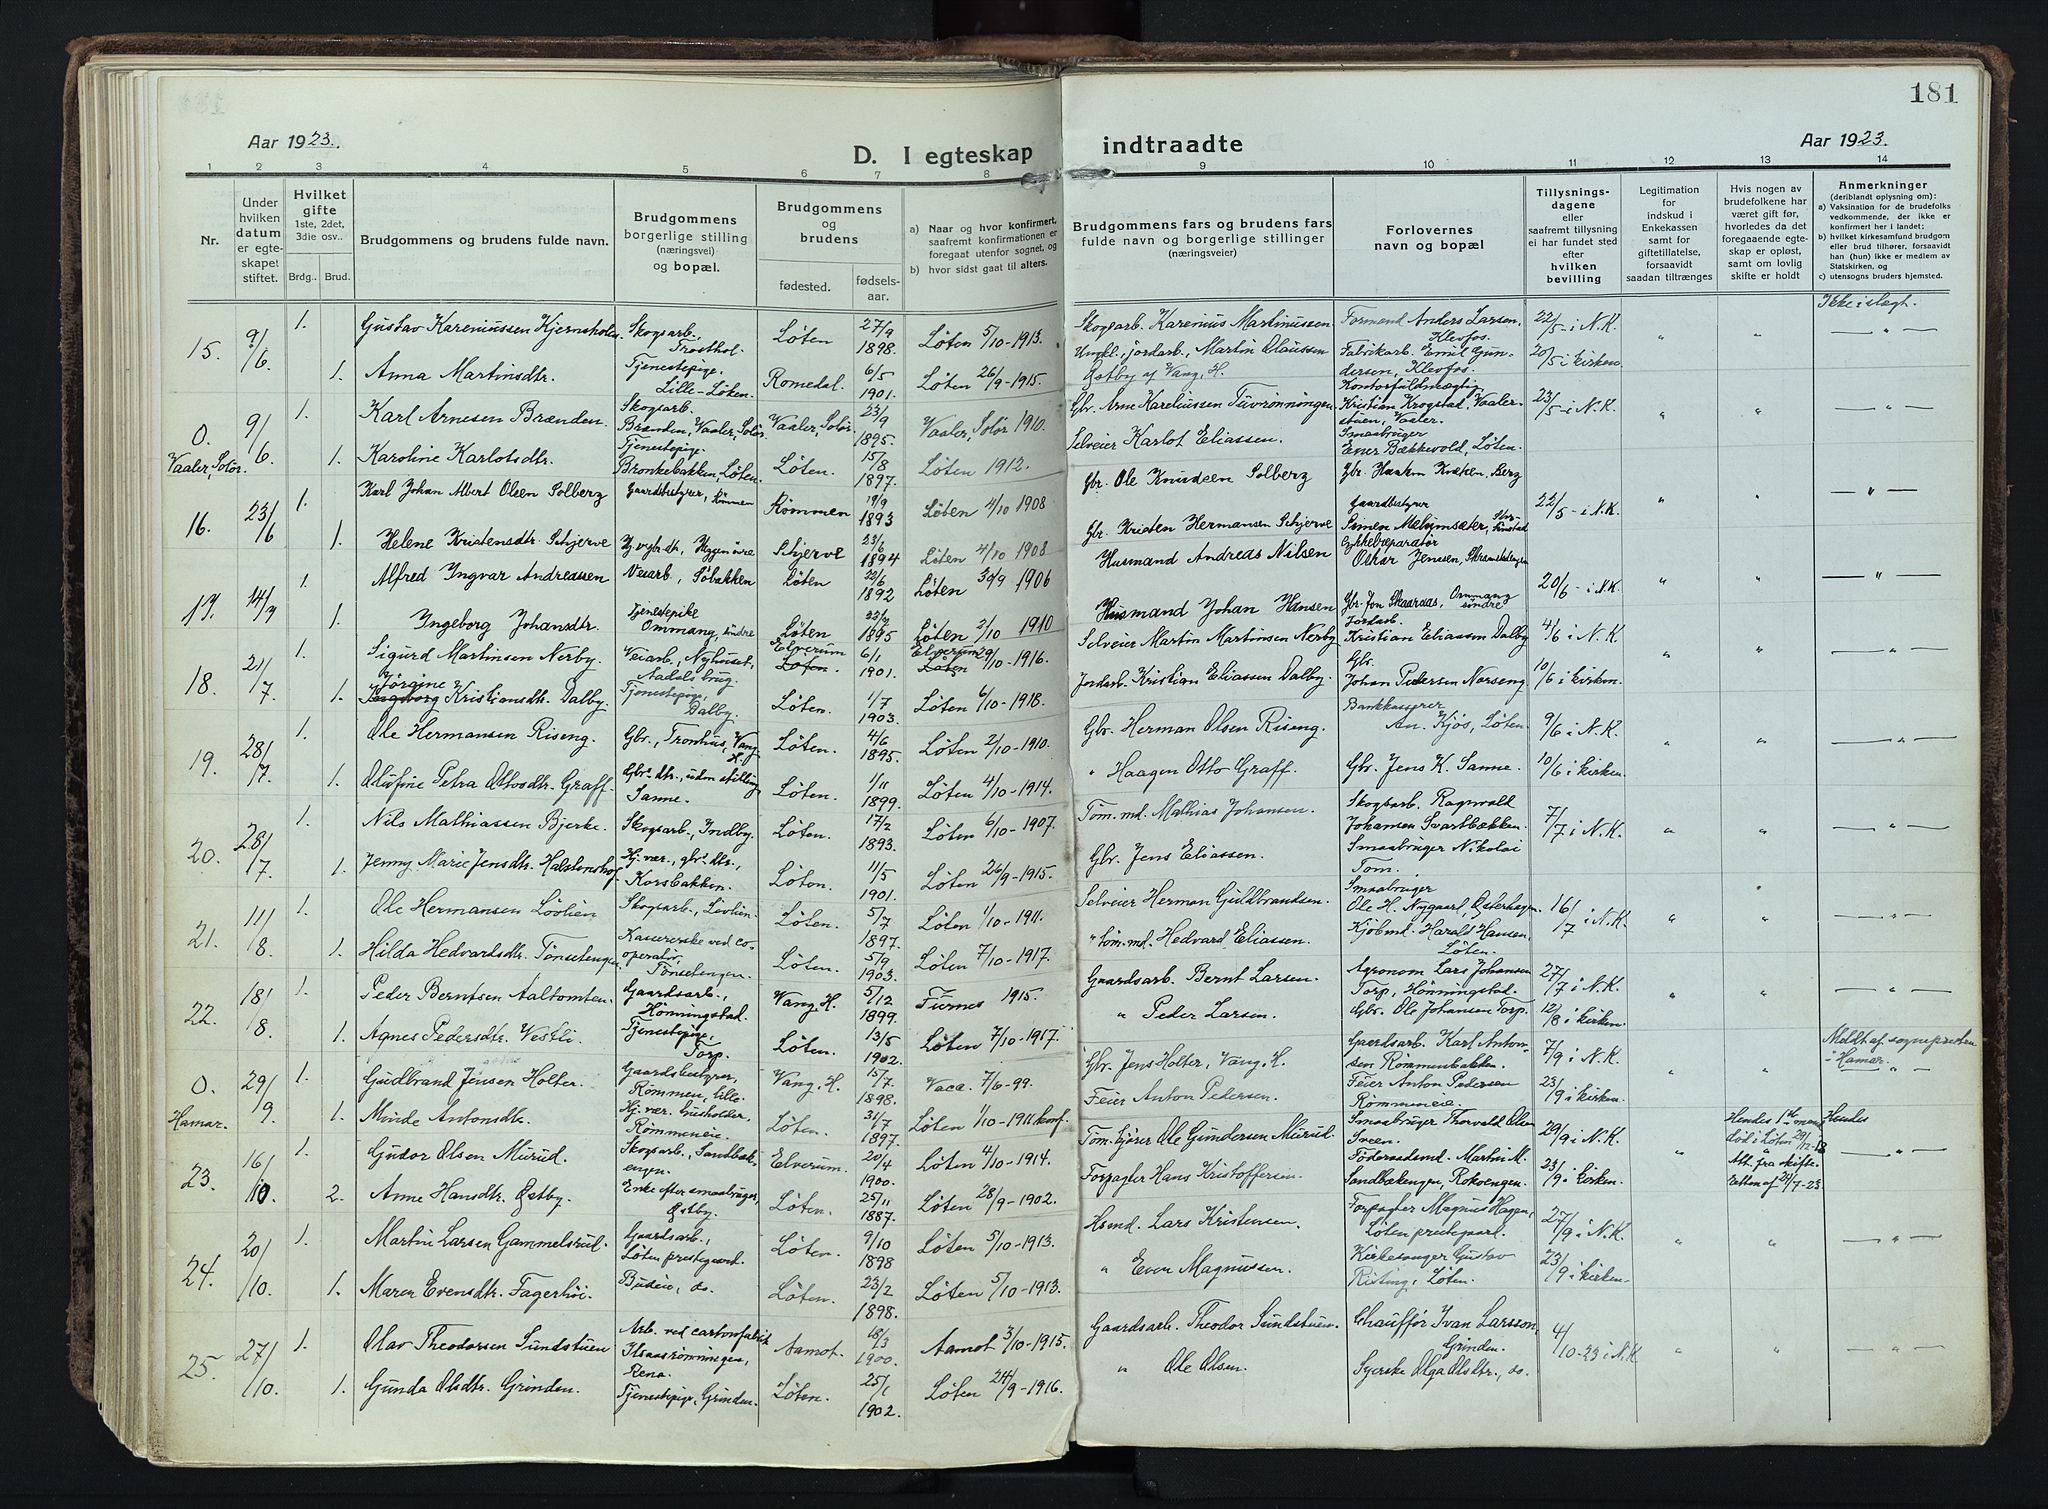 181
Aar 1923.
D. I egteskap
indtraadte
Aar 1923.
1 2 3 4 5 6 7 8 9 10 11 12 13 14
Nr.
Under hvilken datum er egteskapet stiftet.
Hvilket gifte 1ste, 2det, 3die osv..
Brdg.. Brud.
Brudgommens og brudens fulde navn.
Brudgommens borgerlige stilling (næringsvei) og bopæl.
Brudgommens og brudens
fødested.
fødselsaar.
a) Naar og hvor konfirmert, saafremt konfirmationen er foregaat utenfor sognet, og
b) hvor sidst gaat til alters.
Brudgommens fars og brudens fars fulde navn og borgerlige stillinger (næringsveier)
Forlovernes navn og bopæl
Tillysningsdagene eller saafremt tillysning ei har fundet sted efter hvilken bevilling
Legitimation for indskud i Enkekassen samt for giftetillatelse, forsaavidt saadan tiltrænges
Hvis nogen av brudefolkene har været gift før, hvorledes da det foregaaende egteskap er opløst, samt om lovlig skifte er holdt
Anmerkninger (deriblandt oplysning om):
a) Vaksination for de brudefolks vedkommende, der ikke er konfirmert her i landet;
b) hvilket kirkesamfund brudgom eller brud tilhører, forsaavidt han (hun) ikke er medlem av Statskirken, og
c) utensogns bruders hjemsted.
15. 9/6 1. Gustav Kareniussen Kjernsholen Skogsarb. Trosthol. Løten 27/9 1898. Løten 5/10-1913. Skogsarb. Karenius Martinussen Formend Anders Larsen, Klevfos. 22/5 i N.K. " " Ikke i slegt.
1. Anna Martinsdtr. Tjenestepige, Lille-Løten. Romedal. 6/5 1901. Løten 26/9-1915. Ungk., jordarb., Martin Olaussen Østby af Vang, H. Fabrikarb. Emil Gundersen, Klevfos. 20/5 i kirken.
0. Vaaler, Solør. 9/6 1. Karl Arnesen Brænden. Skogsarb. Brænden, Vaaler, Solør. Vaaler, Solør. 23/9 1895. Vaaler, Solør 1910. Gbr. Arne Kareliussen Tuvrønningen. Kontorfuldmægtig Kristian Krogstad, Vaalerstuen, Vaaler. 23/5 i N.K. " " "
1. Karoline Karlotsdtr. Tjenestepige. Bronkebakken, Løten. Løten. 15/8 1897. Løten 1912. Selveier Karlot Eliassen. Smaabruger Ener Bækkevold, Løten.
16. 23/6 1. Karl Johan Albert Olsen Solberg Gaardsbestyrer, Rømmen Rommen 19/9 1893 Løten 4/10 1908 Gbr. Ole Knudsen Solberg Gbr. Haakon Kvæken, Berg 22/5 i N.K. " " "
1. Helene Kristensdtr. Schjerve Schjerve 23/6 1894 Løten 4/10 1908 Gbr. Kristen Hermansen Schjerve Gaardbestyrer Simen Melumsæter,
17. 14/7 1. Alfred Ingvar Andreassen Veiarb., Søbakken Løten 22/6 1892 Løten 30/9 1906 Husmand Andreas Nilsen Cykkelreparatør Oskar Jensen, 20/6 i N.K. " " "
1. Ingeborg Johansdtr. Tjenestepike Ommang, søndre Løten 22/2 1895 Løten 2/10 1910 Husmand Johan Hansen Gbr. Jon Skaarnæs, Ommang søndre
18. 21/7 1. Sigurd Martinsen Nerby. Veiarb., Nyhuset, Aadals brug. Elverum Løten. 6/1 1901. Elverum Løten 29/10-1916. Selveier Martin Martinsen Nerby Jordarb. Kristian Eliassen Dalby 4/6 i N.K. " " "
1. Jørgine Ingeborg Kristiansdtr. Dalby. Tjenestepige, Dalby. Løten. 1/7 1903. Løten 6/10-1918. Jordarb. Kristian Eliassen Dalby. Gbr. Johan Pedersen Norseng 10/6 i kirken.
19. 28/7 1. Ole Hermansen Riseng. Gbr., Tronhus, Vang H. Løten. 4/6 1895. Løten 2/10-1910. Gbr. Herman Olsen Riseng. Bankkasserer An. Kjøs, Løten. 9/6 i N.K. " " "
1. Olufine Petra Ottosdtr. Graff. Gbr. dtr., uden stilling Sanne. Løten. 1/11 1899. Løten 4/10-1914. " Haagen Otto Graff. Gbr. Jens K. Sanne. 10/6 i kirken.
20. 28/7 1. Nils Mathiassen Bjerke. Skogsarb., Indby. Løten. 17/2 1893. Løten 6/10-1907. Tøm.md. Mathias Johansen. Skogsarb. Ragnvald Johansen Svartbækken. 7/7 i N.K. " " "
1. Jenny Marie Jensdtr. Halstenshof. Hj. vær., gbr. dtr., Korsbakken. Løten. 11/5 1901. Løten 26/9-1915. Gbr. Jens Eliassen. Smaabruger Nikolai Tom.
21. 11/8 1. Ole Hermansen Lövlien Skogsarb., Lövlien. Løten. 5/7 1897. Løten 1/10-1911. Selveier Herman Guldbrandsen. Smaabruger Ole H. Nygaard, Østerhagen. 16/7 i N.K. " " "
1. Hilda Hedvardsdtr. Tønsetengen Kassererske ved cooperativ, Tønsetengen. Løten. 5/9 1903. Løten 7/10-1917. " tøm.md. Hedvard Eliassen. Kjøbmd. Harald Hansen, Løten.
22. 18/8 1. Peder Berntsen Aaltomten. Gaardsarb., Hønningstad. Vang, H. 5/12 1899. Furnes 1915. Gaardsarb. Bernt Larsen. Agronom Lars Johansen Torp, Hønningstad. 27/7 i N.K. " " "
1. Agnes Pedersdtr. Vestli. Tjenestepige, Torp. Løten. 13/5 1902. Løten 7/10-1917. " Peder Larsen. Gbr. Ole Johansen Torp. 12/8 i kirken.
0. Hamar. 29/9 1. Gudbrand Jensen Holter. Gaardsbestyrer, Rømmen, lille. Vang, H. 15/7 1898. Vaca. 7/6-99. Gbr. Jens Holter, Vang, H. Gaardsarb. Karl Antonsen Rømmenbakken. 7/9 i N.K. " " Meldt af sognepresten i Hamar.
1. Minde Antonsdtr. Hj. vær. husholder, Rømmeneie. Løten. 31/7 1897. Løten 1/10-1911 konf. Feier Anton Pedersen. Feier Anton Pedersen Rømmeneie. 23/9 i kirken.
23. 16/10 1. Gudor Olsen Murud. Skogsarb., Sandbækengen. Elverum. 20/4 1900. Løten 4/10-1914. Tøm. Ole Gundersen Murud. Smaabruger Thorvald Olsen Sveen. 29/9 i N.K. " Hendes 1ste mand død i Løten Att. fra skifteretten af 24/7-23. Hendes
2. Anne Hansdtr. Østby. Enke efter smaabruger, Østby. Løten. 25/11 1887. Løten 28/9-1902. Forpagter Hans Kristoffersen. Føderaadsmd. Martin M. Sandbækengen, Rokvengen. 23/9 i kirken.
24. 20/10 1. Martin Larsen Gammelsrud. Gaardsarb., Løten prestegaard. Løten. 9/10 1898 Løten 5/10-1913. Hsmd. Lars Kristensen. Forpagter Magnus Hagen, Løten prestegaard. 27/9 i N.K. " " "
1. Maren Evensdtr. Fagerhöi. Budeie, do. Løten. 23/2 1898. Løten 5/10-1913. " Even Magnussen. Kirkesanger Gustav Risting, Løten. 23/9 i kirken.
25. 27/10 1. Olav Theodorsen Sundstuen Arb. ved cartonfabrik Ilsaasrønningen, Rena. Aamot. 18/3 1900. Aamot 3/10-1915. Gaardsarb. Theodor Sundstuen. Chauffør Ivan Larsson, Grinden. 4/10-23 i N.K. " " "
1. Gunda Olsdtr. Grinden. Tjenestepige, Grinden. Løten. 25/1 1902. Løten 24/9-1916. " Ole Olsen. Syerske Olga Olsdtr., do.